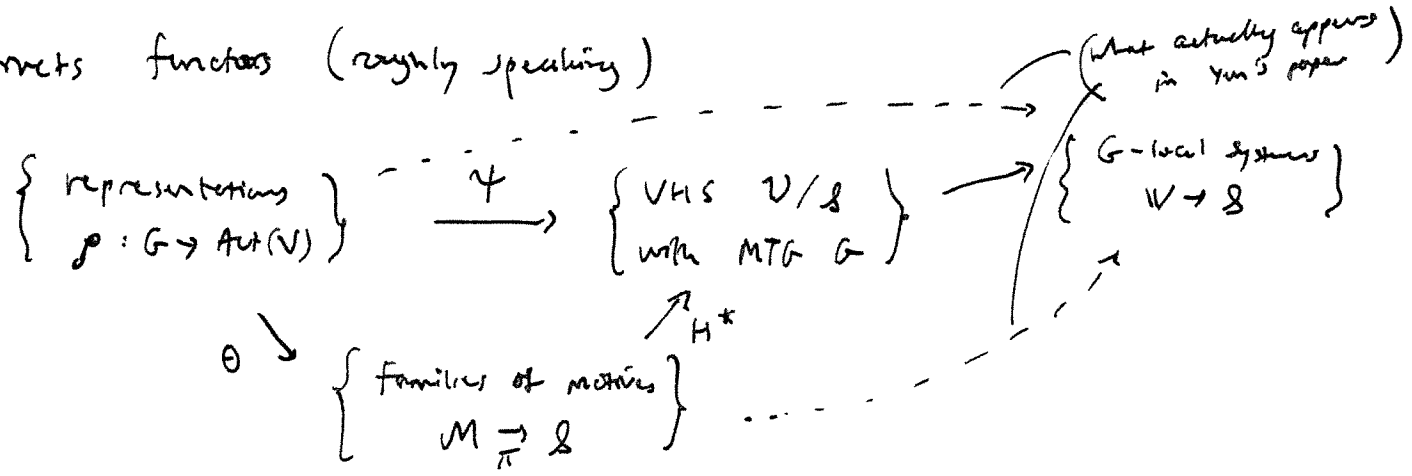 functors (roughly speaking)
(what actually appears
in Yun's paper)
{ representations
ρ : G → Aut(V) }
Ψ
{ VHS 𝒱/𝒮
with MTG G }
{ G-local systems
𝕎 → 𝒮 }
Θ
H*
{ families of motives
ℳ →π 𝒮 }